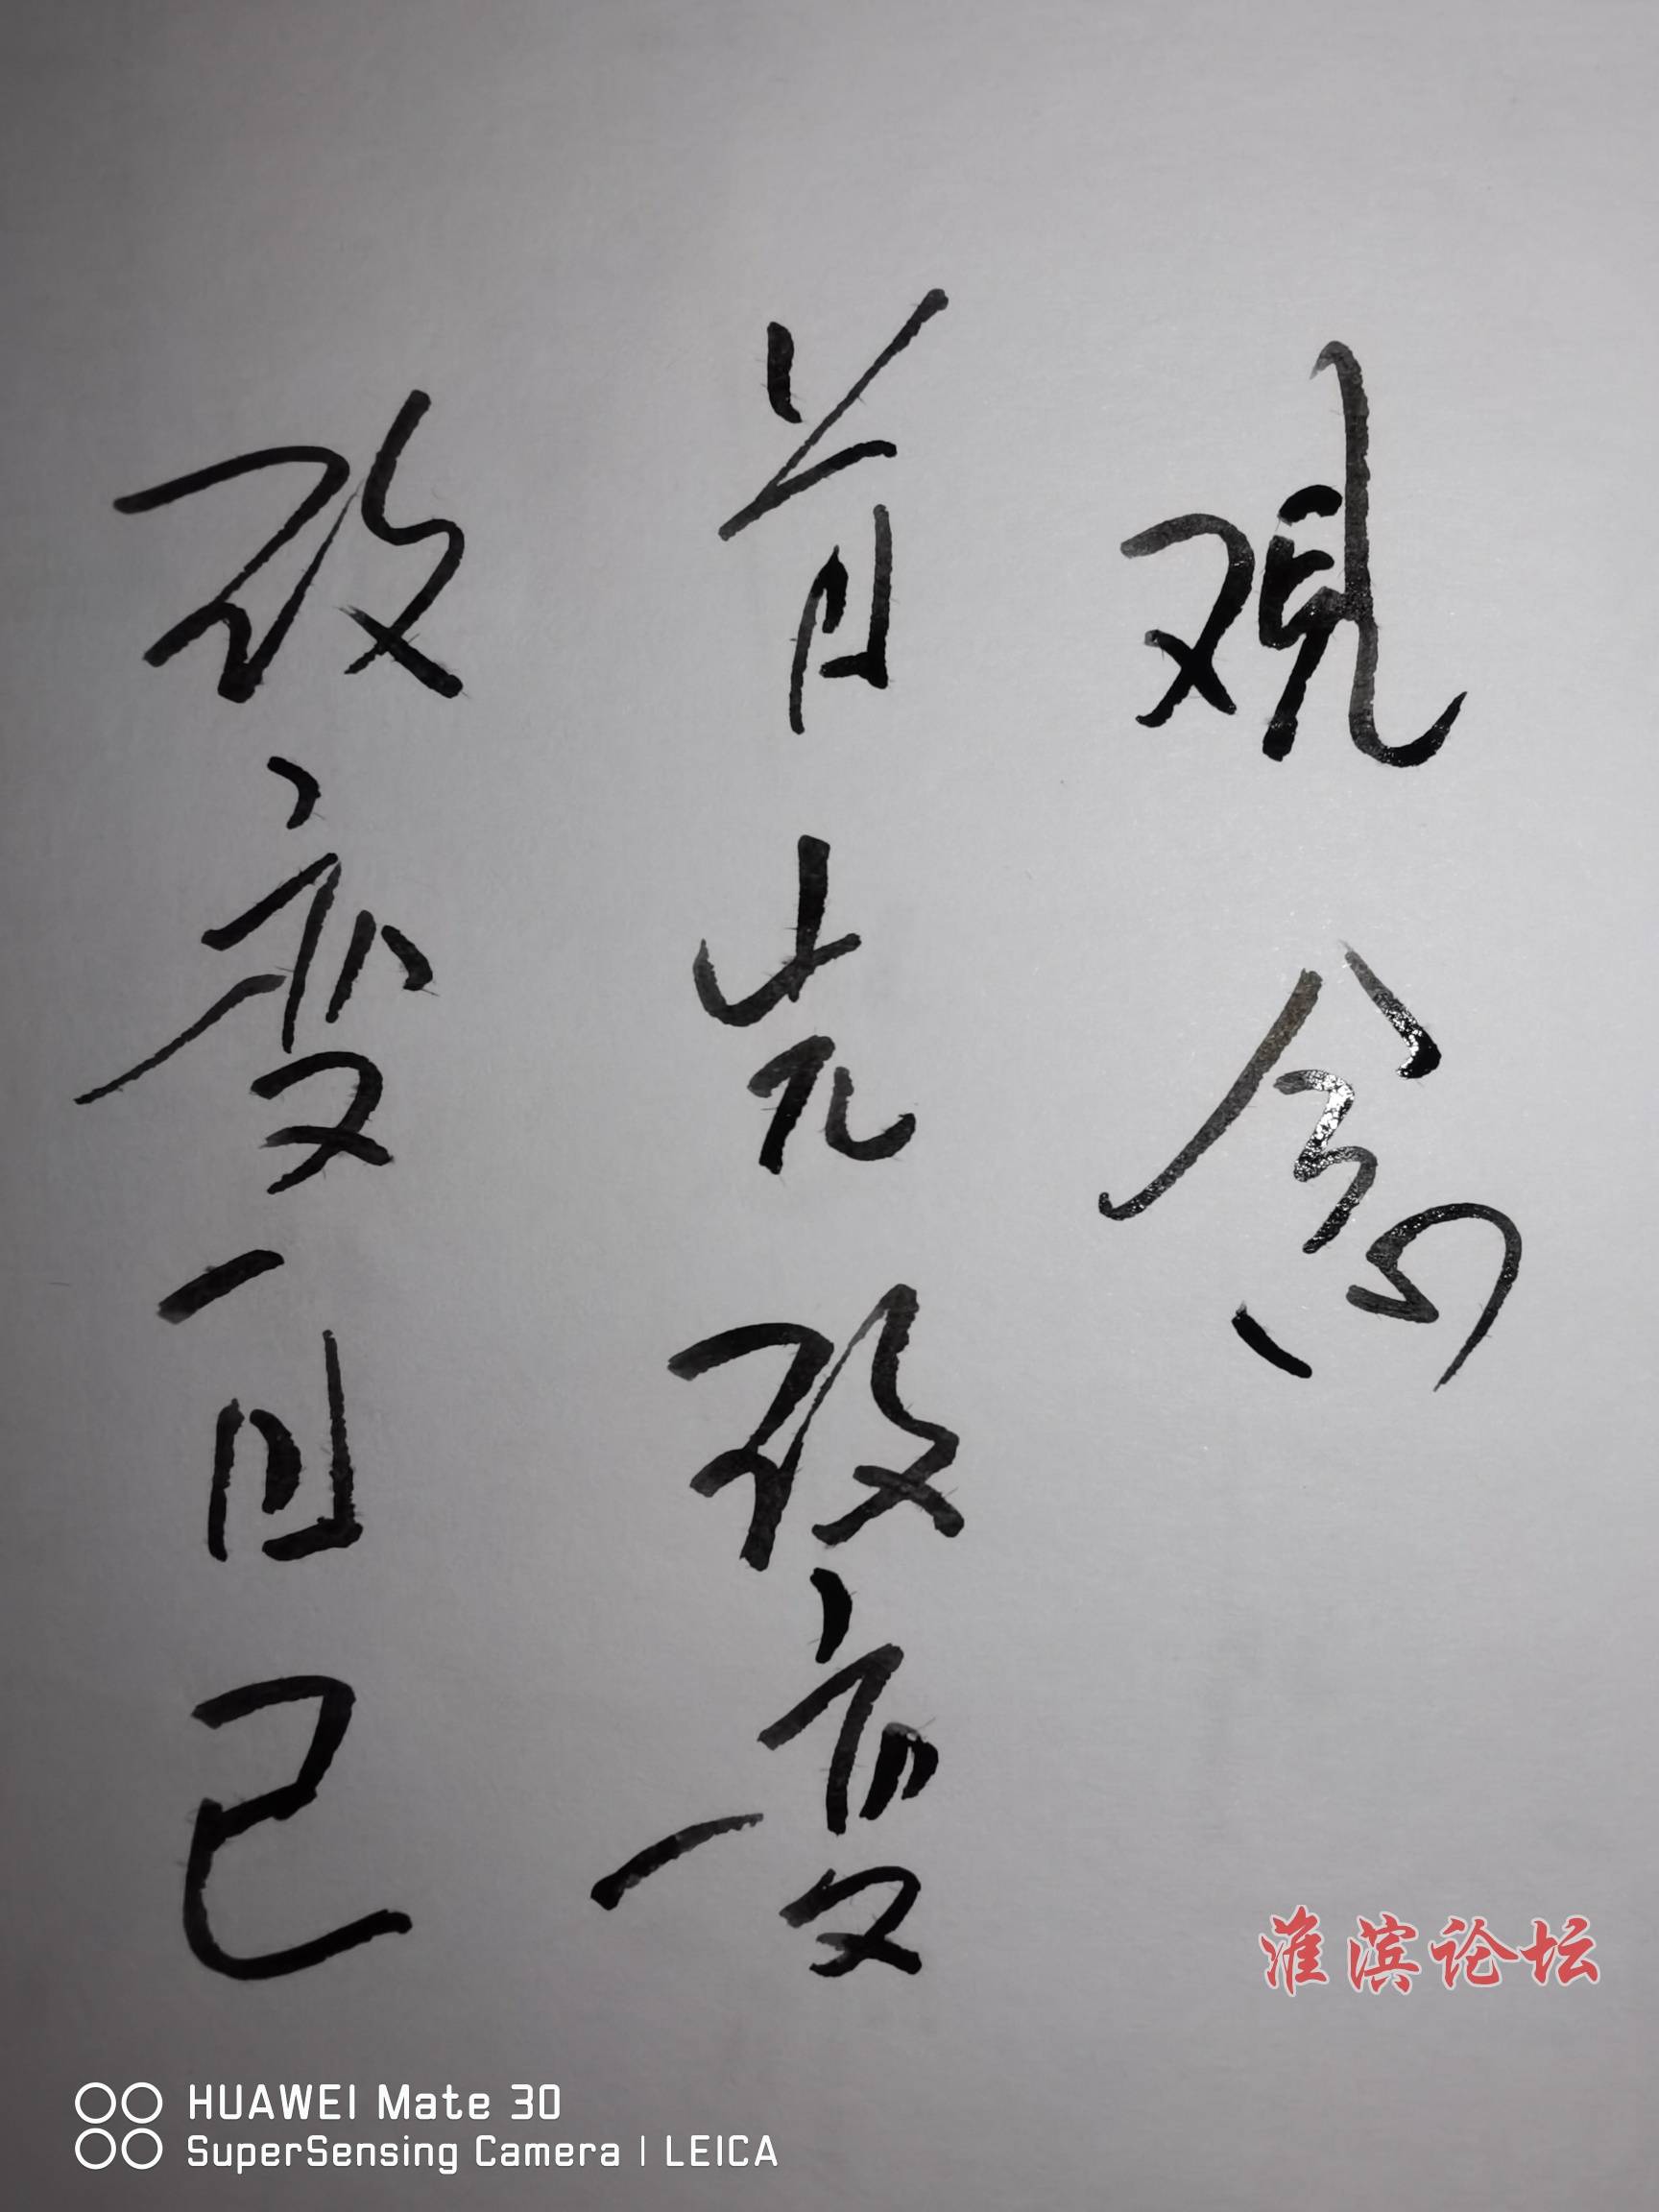 改变自己
首先改变
观念
淮滨论坛
HUAWEI Mate 30
SuperSensing Camera | LEICA